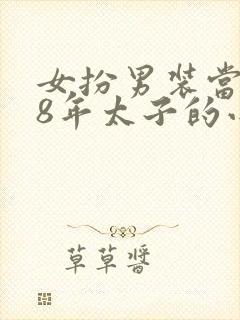 女扮男装當
8年太子的
草草醬